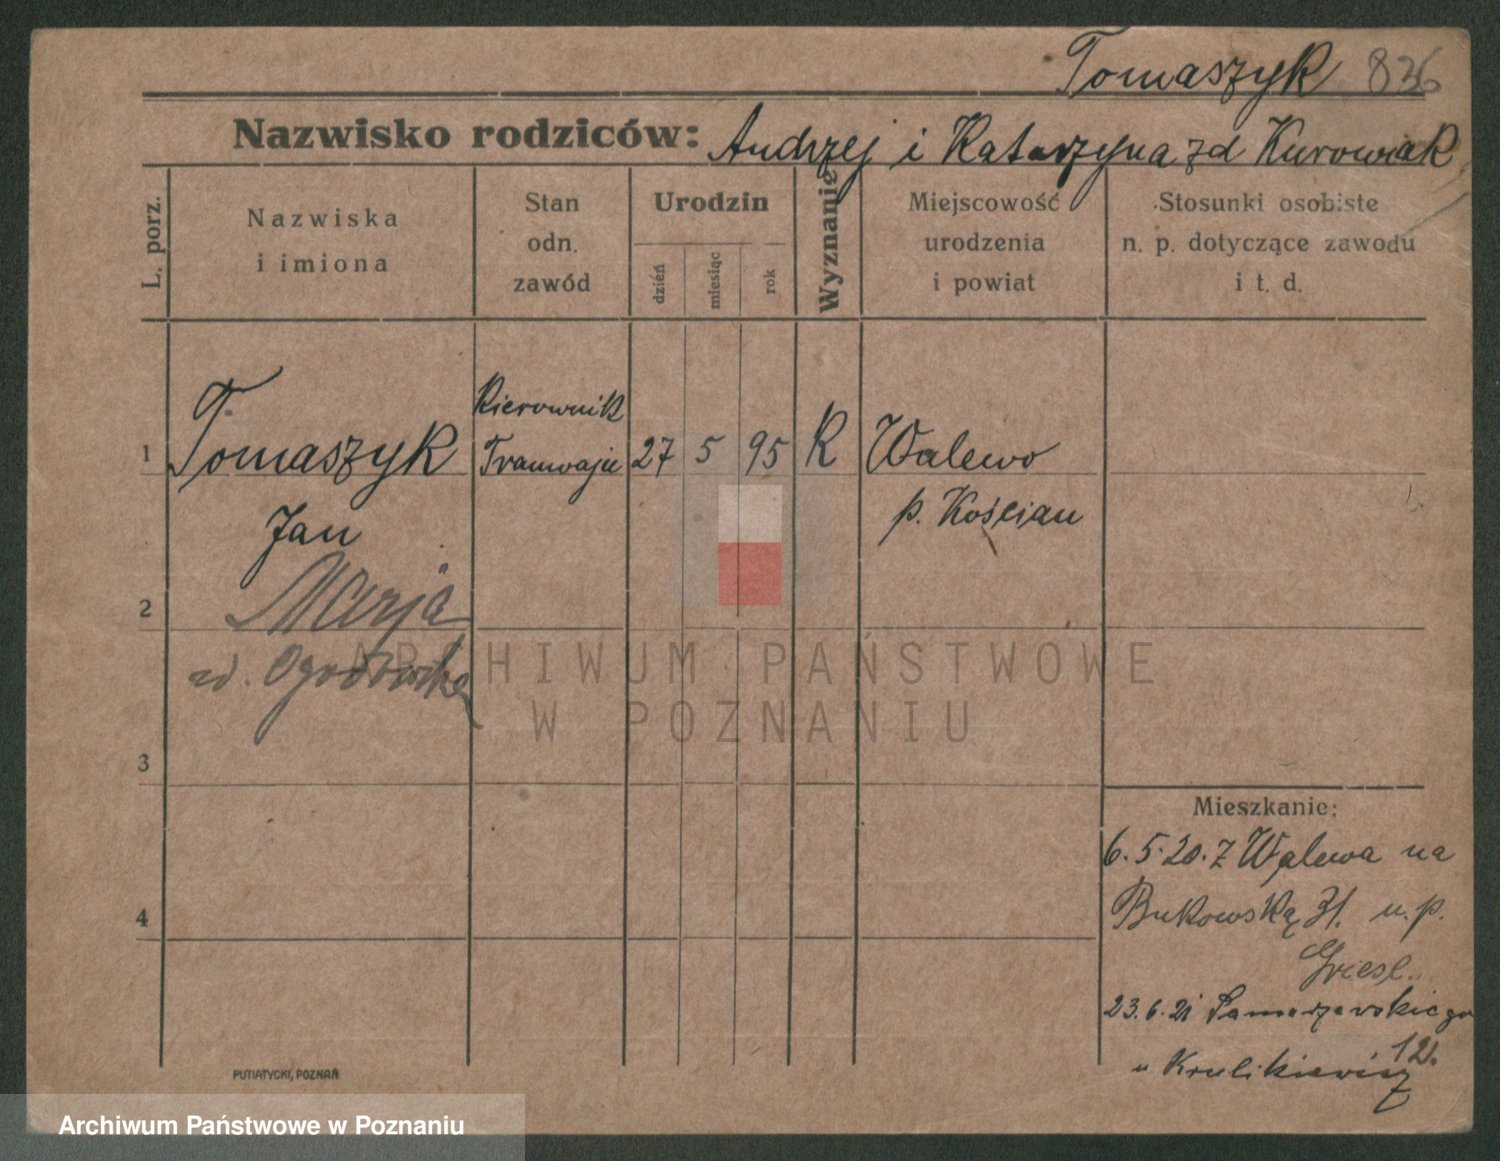 Tomaszyk 836
Nazwisko rodziców: Andrzej i Katarzyna zd Kurowiak
L. porz.
Nazwiska
i imiona
Stan
odn.
zawód
Urodzin
dzień
miesiąc
rok
Wyznanie
Miejscowość
urodzenia
i powiat
Stosunki osobiste
n. p. dotyczące zawodu
i t. d.
Kierownik
1 Tomaszyk Tramwaju 27 5 95 K Walewo
Jan p. Kościan
2 Marja
zd. Ogrodowska
ARCHIWUM PAŃSTWOWE
W POZNANIU
3
Mieszkanie:
6.5.20. z Walewa na
4 Bukowską 31. u. p.
Griesl.
23.6.21 Samarzewskiego
12.
u Krulikiewicz
PUTIATYCKI, POZNAŃ
Archiwum Państwowe w Poznaniu